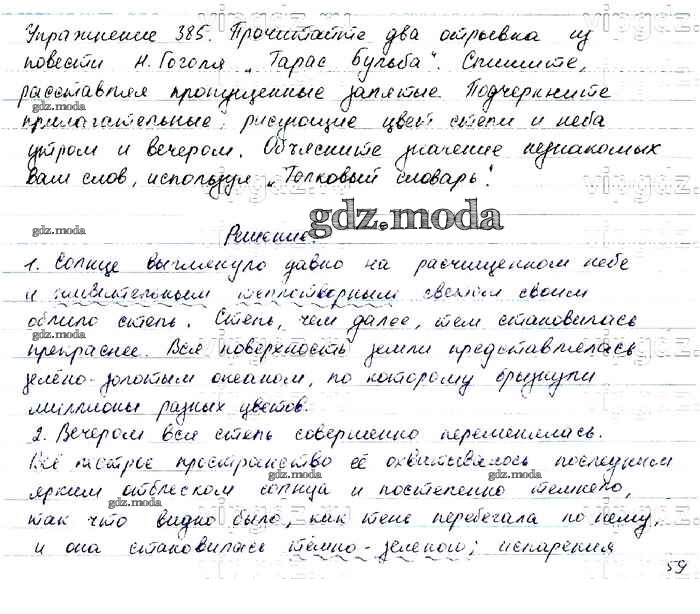 Упражнение 385. Прочитайте два отрывка из
повести Н. Гоголя „Тарас Бульба". Спишите,
расставляя пропущенные запятые. Подчеркните
gdz.moda
прилагательные, рисующие цвет степи и неба
утром и вечером. Объясните значение незнакомых
Вам слов, используя „Толковый словарь".
gdz.moda
gdz.moda
Решение.
1. Солнце выглянуло давно на расчищенном небе
gdz.moda
и живительным теплотворным светом своим
облило степь. Степь, чем далее, тем становилась
gdz.moda
прекраснее. Вся поверхность земли представлялась
зелёно-золотым океаном, по которому брызнули
миллионы разных цветов.
gdz.moda
2. Вечером вся степь совершенно переменялась.
Всё пестрое пространство её охватывалось последним
gdz.moda gdz.moda
ярким отблеском солнца и постепенно темнело,
gdz.moda
так что видно было, как тень перебегала по нему,
и она становилась тёмно-зеленою; испарения
gdz.moda
59